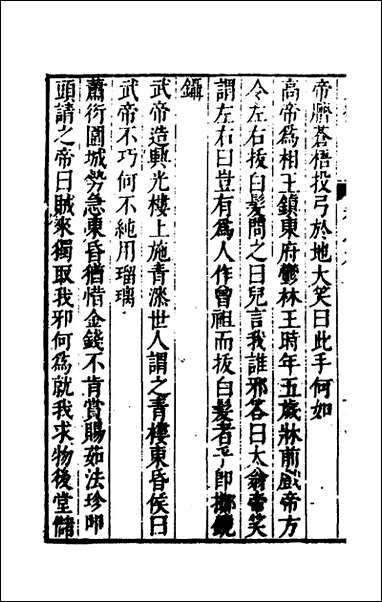 帝臍蒼梧投弓於地大笑曰此手何如
高帝為相王鎮東府鬱林王時年五歲牀前戲帝方
令左右拔白髮問之曰兒言我誰邪答曰太翁帝笑
謂左右曰豈有為人作曾祖而拔白髮者乎即擲鏡
鑷
武帝造興光樓上施青漆世人謂之青樓東昏侯曰
武帝不巧何不純用瑠璃
蕭衍圍城勢急東昏猶惜金錢不肯賞賜茹法珍叩
頭請之帝曰賊來獨取我邪何為就我求物後堂儲